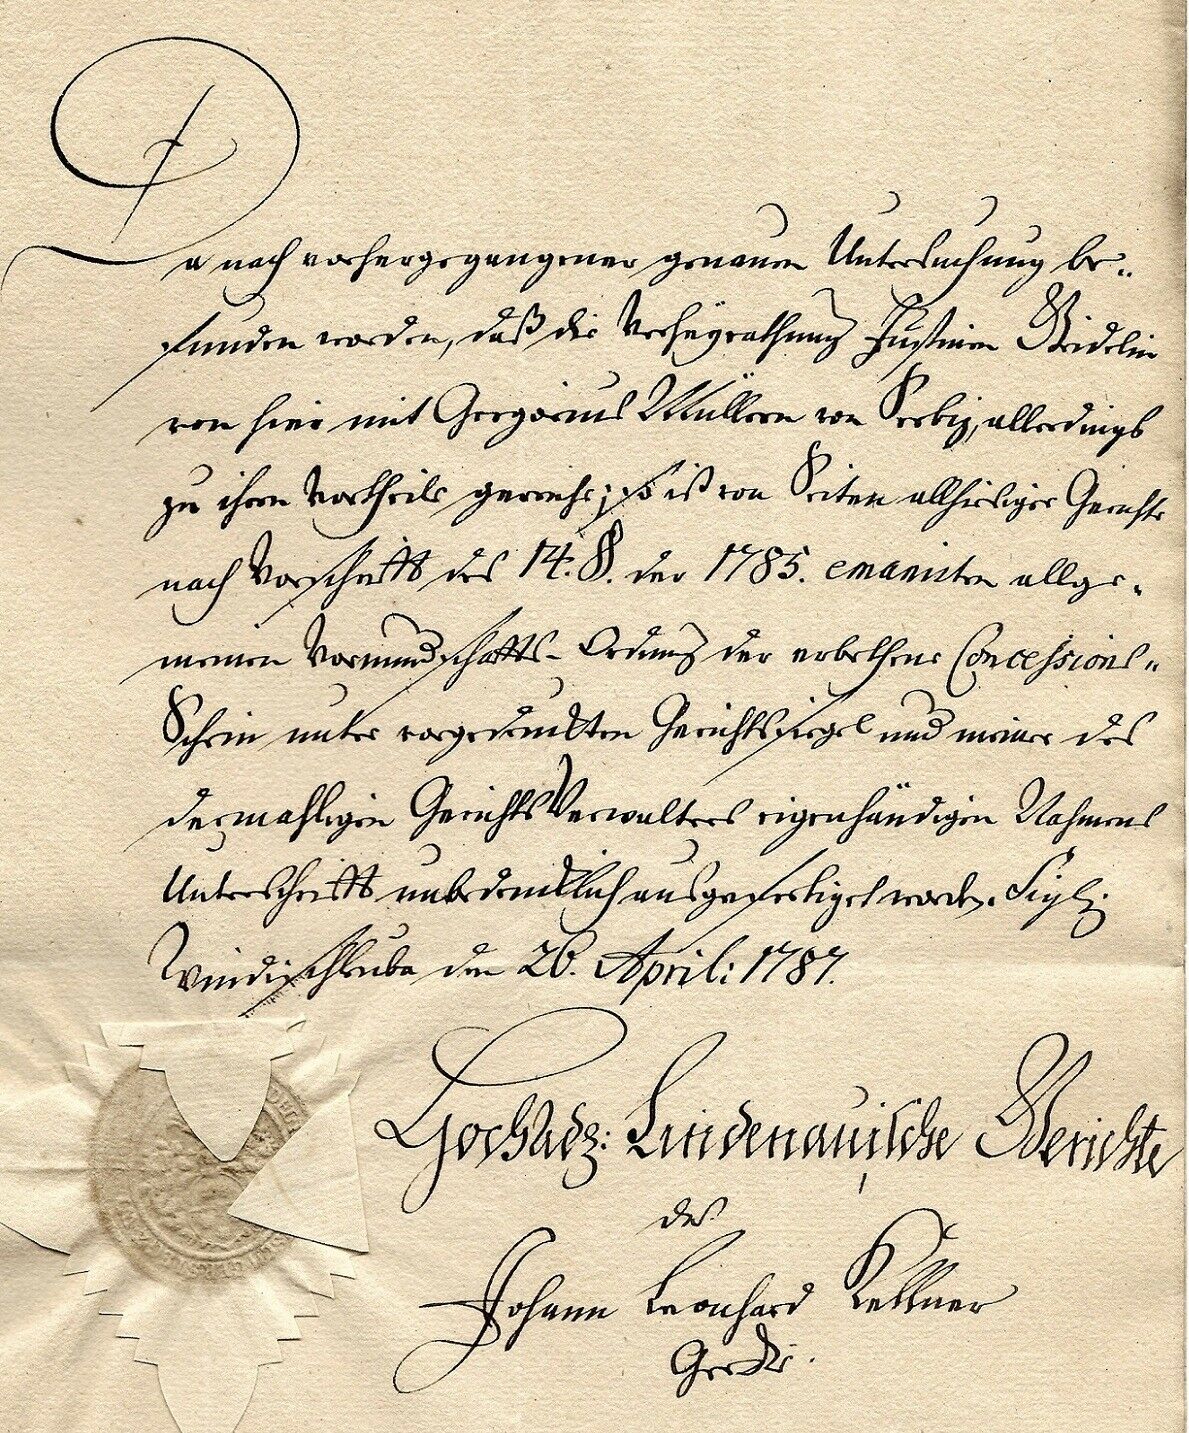 Da nach vorhergegangener genauen Untersuchung be-
funden worden, daß die Verheyrathung Justinen Weidelin
von hier mit Gregorius Müllern von Serbiz, allerdings
zu ihren Vortheile gereiche; so ist von Seiten allhiesiger Gerichte
nach Vorschrifft des 14. §. der 1785. emanirten allge-
meinen Vormundschaffts-Ordung der erbethene Concessions-
Schein unter vorgedruckten Gerichtssiegel und meiner des
dermahligen Gerichts Verwalters eigenhändigen Nahmens
Unterschrifft unbedencklich ausgefertiget worden. Sigl.
Windischleuba den 26. April: 1787.
Hochadl: Lindenauische Gerichte
das.
Johann Leonhard Kellner